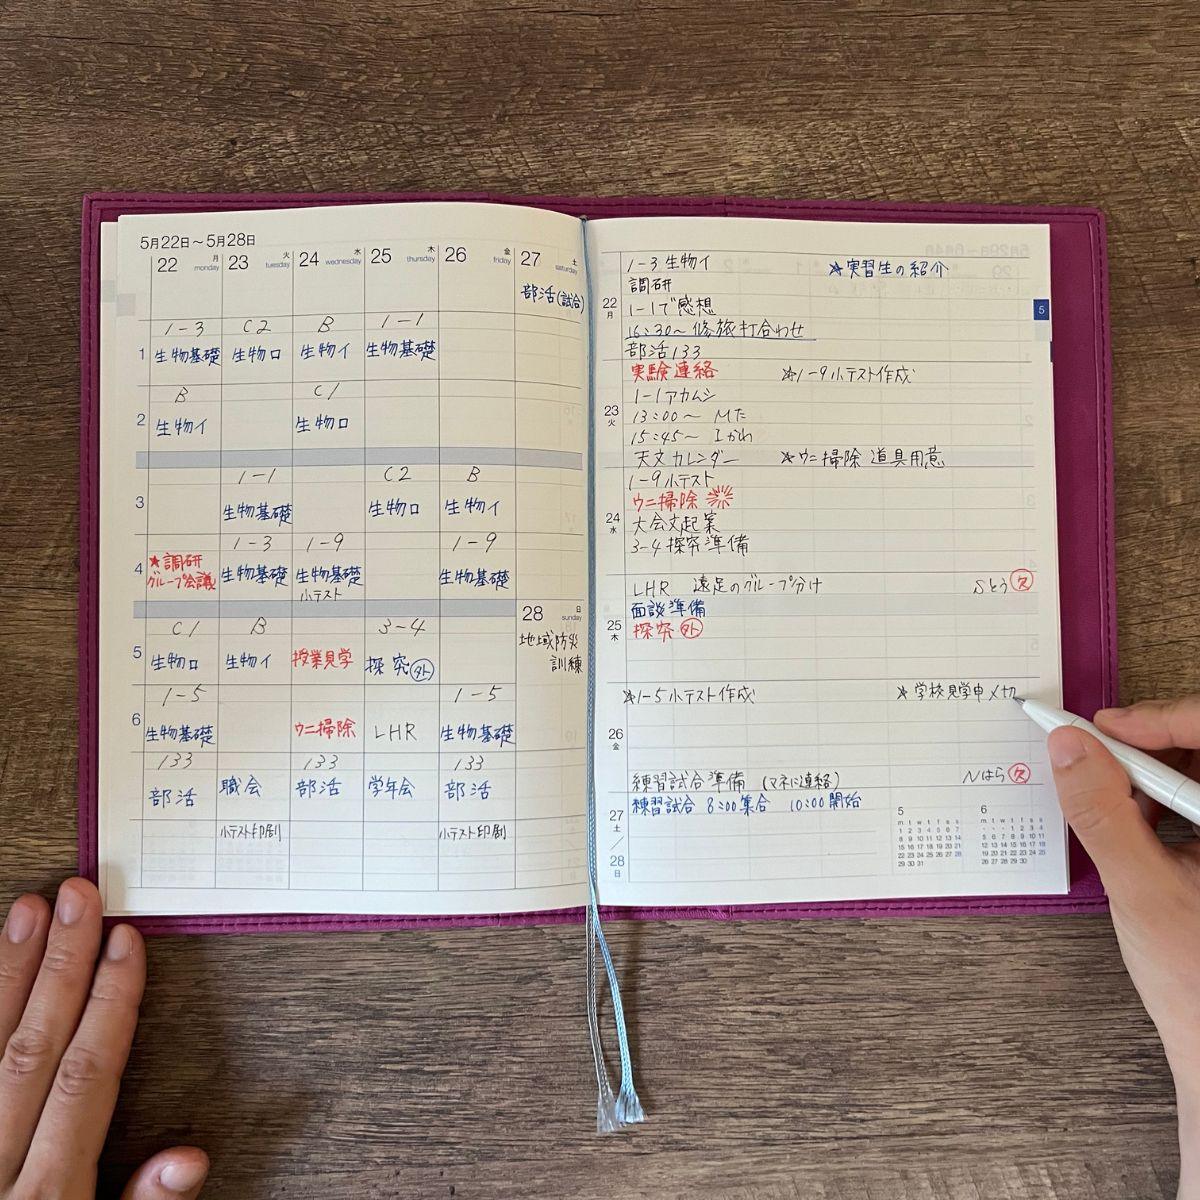 5月22日～5月28日
22 月 monday
23 火 tuesday
24 水 wednesday
25 木 thursday
26 金 friday
27 土 saturday
部活(試合)
1-3 C2 B 1-1
1 生物基礎 生物ロ 生物イ 生物基礎
B C1
2 生物イ 生物ロ
1-1 C2 B
3 生物基礎 生物ロ 生物イ
1-3 1-9 1-9
4 ★調研 グループ会議 生物基礎 生物基礎 小テスト 生物基礎
28 日 sunday
地域防災
訓練
C1 B 3-4
5 生物ロ 生物イ 授業見学 探究(外)
1-5 1-5
6 生物基礎 ウニ掃除 LHR 生物基礎
133 133 133
部活 職会 部活 学年会 部活
小テスト印刷 小テスト印刷
22 月
1-3 生物イ ★実習生の紹介
調研
1-1で感想
16:30～修旅打合わせ
部活133
23 火
実験連絡 ★1-9小テスト作成
1-1アカムシ
13:00～ Mた
15:45～ Iかわ
天文カレンダー ★ウニ掃除 道具用意
24 水
1-9小テスト
ウニ掃除
大会文起案
3-4探究準備
25 木
LHR 遠足のグループ分け Sとう(欠)
面談準備
探究(外)
26 金
★1-5小テスト作成 ★学校見学申〆切
練習試合準備 (マネに連絡) Nはら(欠)
27 土 / 28 日
練習試合 8:00集合 10:00開始
5
m t w t f s s
1 2 3 4 5 6 7
8 9 10 11 12 13 14
15 16 17 18 19 20 21
22 23 24 25 26 27 28
29 30 31
6
m t w t f s s
1 2 3 4
5 6 7 8 9 10 11
12 13 14 15 16 17 18
19 20 21 22 23 24 25
26 27 28 29 30
5